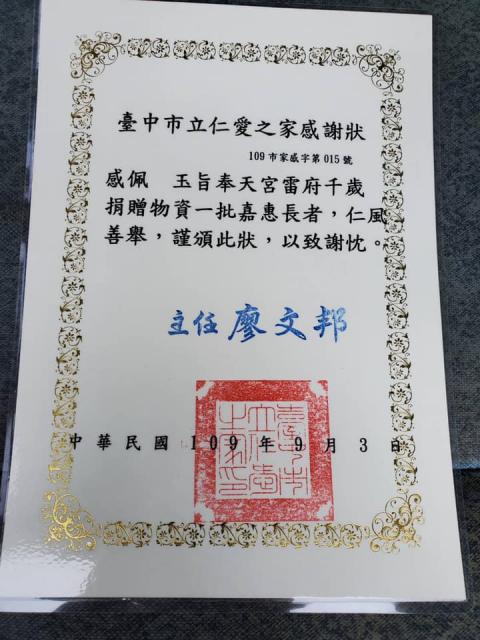 臺中市立仁愛之家感謝狀
109市家感字第015號
感佩 玉旨奉天宮雷府千歲
捐贈物資一批嘉惠長者，仁風
善舉，謹頒此狀，以致謝忱。
主任 廖文邦
中華民國109年9月3日